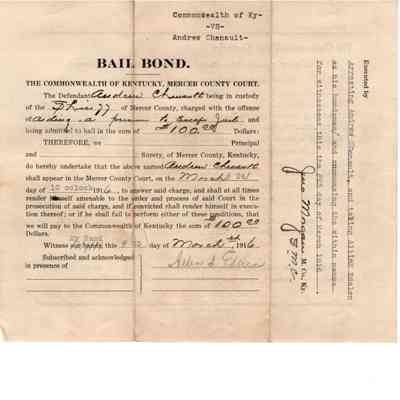 Commonwealth of Ky-
-VS-
Andrew Chenault-
BAIL BOND.
THE COMMONWEALTH OF KENTUCKY, MERCER COUNTY COURT.
The Defendant Andrew Chenault being in custody
of the Sheriff of Mercer County, charged with the offense
of Aiding a prisoner to Escape Jail and
being admitted to bail in the sum of $100.00 Dollars:
THEREFORE, we Principal
and Surety, of Mercer County, Kentucky,
do hereby undertake that the above named Andrew Chenault
shall appear in the Mercer County Court, on the March
day of 10 oclock 1916, to answer said charge, and shall at all times
render himself amenable to the order and process of said Court in the
prosecution of said charge, and if convicted shall render himself in execu-
tion thereof; or if he shall fail to perform either of these conditions, that
we will pay to the Commonwealth of Kentucky the sum of $100.00
Dollars.
My Hand
Witness this day of March 1916
Subscribed and acknowledged
in presence of
Executed by
Arresting Andrew Chenault, and taking
as his bondsman, and summoning the within names
for witnesses this the day of March 1916
Morgan, M. Co., Ky.